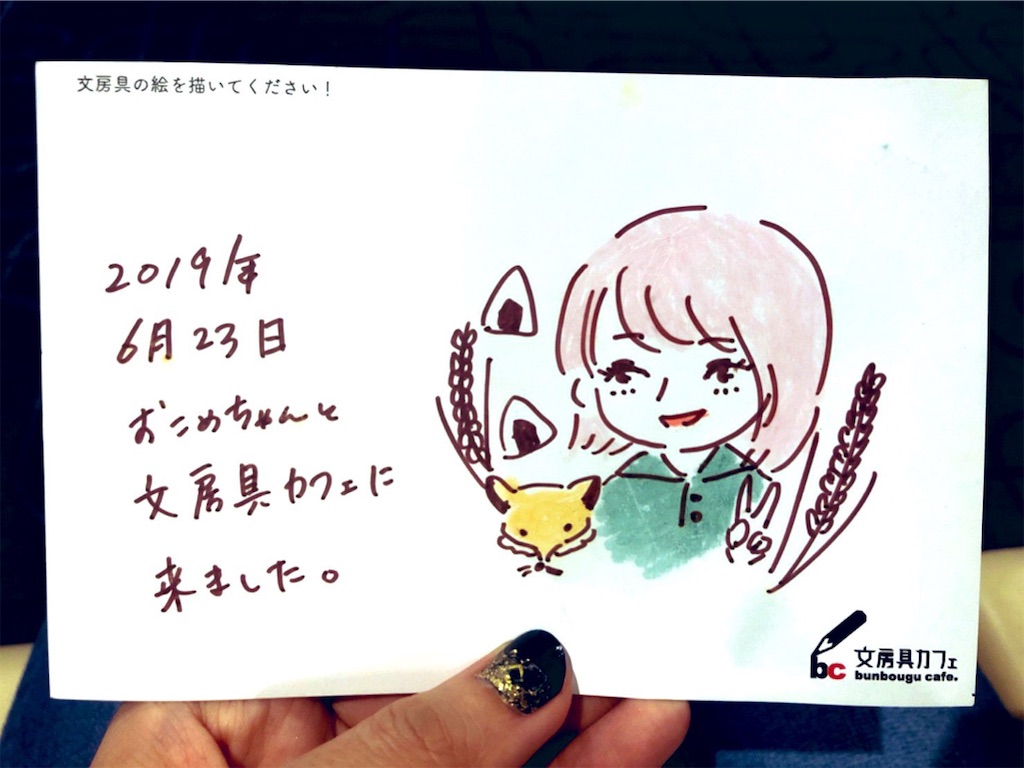 文房具の絵を描いてください!
2019年
6月23日
おこめちゃんと
文房具カフェに
来ました。
bc 文房具カフェ
bunbougu cafe.